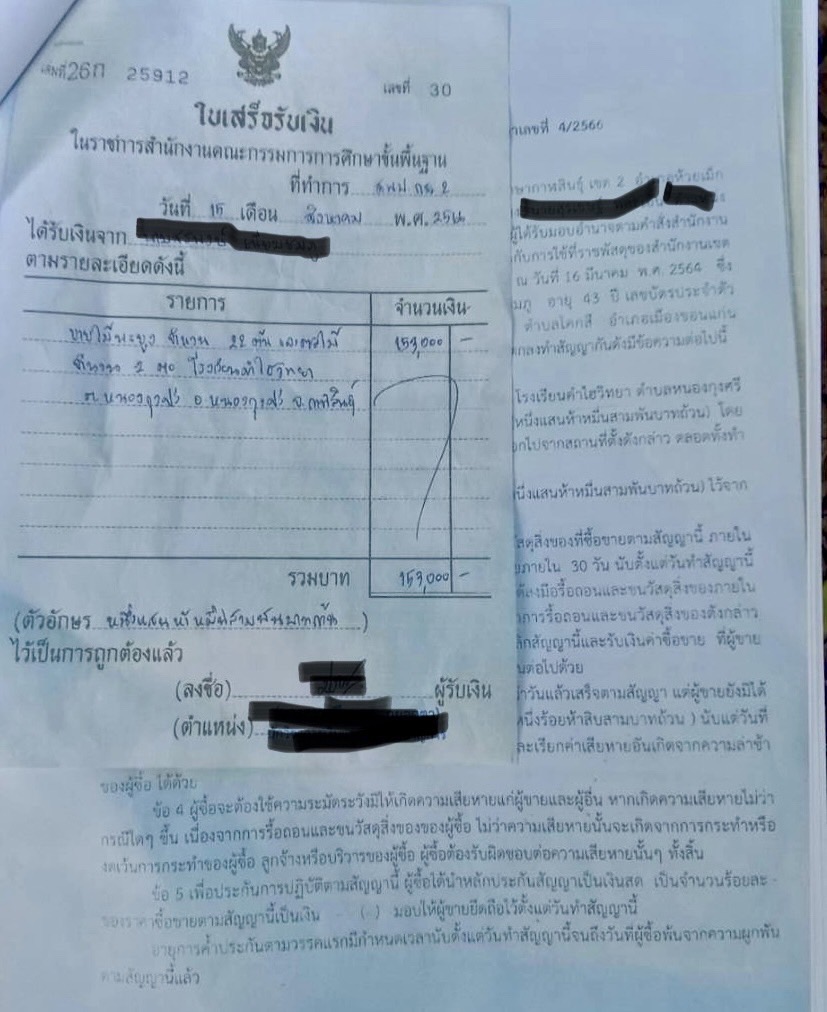 เล่มที่ 26ก 25912
เลขที่ 30
ใบเสร็จรับเงิน
ในราชการสำนักงานคณะกรรมการการศึกษาขั้นพื้นฐาน
ที่ทำการ สพป.กส.2
วันที่ 15 เดือน สิงหาคม พ.ศ.
ได้รับเงินจาก
ตามรายละเอียดดังนี้
รายการ จำนวนเงิน
ขายไม้พะยูง จำนวน 22 ต้น และตอไม้ 153,000 –
จำนวน 2 ตอ โรงเรียนคำไฮวิทยา
ต.หนองกุงศรี อ.หนองกุงศรี จ.กาฬสินธุ์
รวมบาท 153,000 –
(ตัวอักษร หนึ่งแสนห้าหมื่นสามพันบาทถ้วน)
ไว้เป็นการถูกต้องแล้ว
(ลงชื่อ) ผู้รับเงิน
(ตำแหน่ง)
เลขที่ 4/2566
กาฬสินธุ์ เขต 2 อำเภอห้วยเม็ก
ผู้ได้รับมอบอำนาจตามคำสั่งสำนักงาน
กับการใช้ที่ราชพัสดุของสำนักงานเขต
ณ วันที่ 16 มีนาคม พ.ศ. 2564 ซึ่ง
มภู อายุ 43 ปี เลขบัตรประจำตัว
ตำบลโคกสี อำเภอเมืองขอนแก่น
ตกลงทำสัญญากันดังมีข้อความต่อไปนี้
โรงเรียนคำไฮวิทยา ตำบลหนองกุงศรี
หนึ่งแสนห้าหมื่นสามพันบาทถ้วน) โดย
อกไปจากสถานที่ตั้งดังกล่าว ตลอดทั้งทำ
นึ่งแสนห้าหมื่นสามพันบาทถ้วน) ไว้จาก
วัสดุสิ่งของที่ซื้อขายตามสัญญานี้ ภายใน
ยภายใน 30 วัน นับตั้งแต่วันทำสัญญานี้
ต้องลงมือรื้อถอนและขนวัสดุสิ่งของภายใน
การรื้อถอนและขนวัสดุสิ่งของดังกล่าว
ลิกสัญญานี้และรับเงินค่าซื้อขาย ที่ผู้ขาย
นต่อไปด้วย
วันแล้วเสร็จตามสัญญา แต่ผู้ขายยังมิได้
หนึ่งร้อยห้าสิบสามบาทถ้วน ) นับแต่วันที่
ละเรียกค่าเสียหายอันเกิดจากความล่าช้า
ของผู้ซื้อ ได้ด้วย
ข้อ 4 ผู้ซื้อจะต้องใช้ความระมัดระวังมิให้เกิดความเสียหายแก่ผู้ขายและผู้อื่น หากเกิดความเสียหายไม่ว่า
กรณีใดๆ ขึ้น เนื่องจากการรื้อถอนและขนวัสดุสิ่งของของผู้ซื้อ ไม่ว่าความเสียหายนั้นจะเกิดจากการกระทำหรือ
งดเว้นการกระทำของผู้ซื้อ ลูกจ้างหรือบริวารของผู้ซื้อ ผู้ซื้อต้องรับผิดชอบต่อความเสียหายนั้นๆ ทั้งสิ้น
ข้อ 5 เพื่อประกันการปฏิบัติตามสัญญานี้ ผู้ซื้อได้นำหลักประกันสัญญาเป็นเงินสด เป็นจำนวนร้อยละ -
ของราคาซื้อขายตามสัญญานี้เป็นเงิน (-) มอบให้ผู้ขายยึดถือไว้ตั้งแต่วันทำสัญญานี้
อายุการค้ำประกันตามวรรคแรกมีกำหนดเวลานับตั้งแต่วันทำสัญญานี้จนถึงวันที่ผู้ซื้อพ้นจากความผูกพัน
ตามสัญญานี้แล้ว